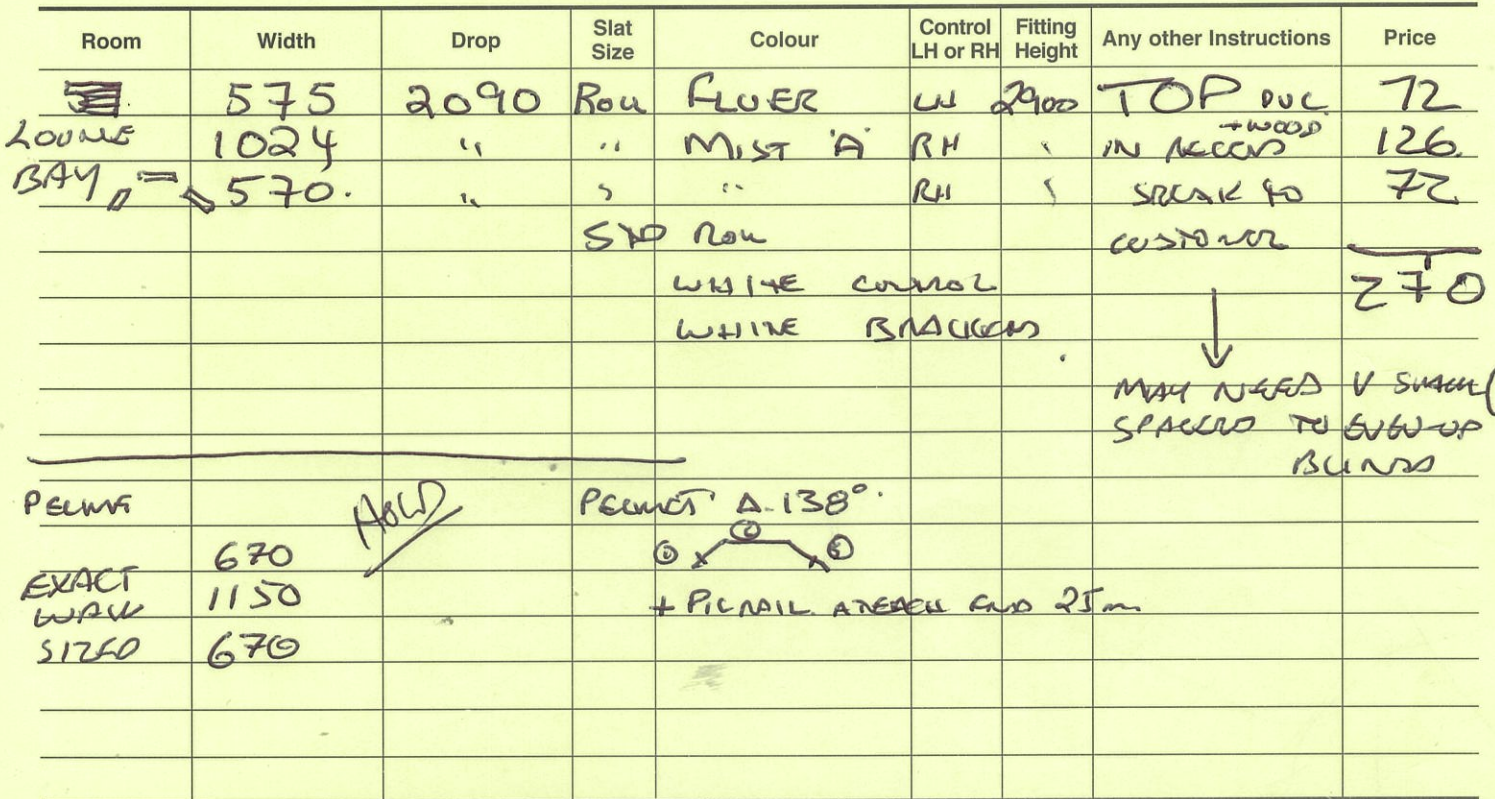 Room Width Drop Slat Size Colour Control LH or RH Fitting Height Any other Instructions Price
575 2090 Roll FLUER LH 2900 TOP PVC 72
+ WOOD
LOUNGE 1024 " " MIST 'A' RH " IN RECESS 126
BAY 570. " " " RH " SPEAK TO 72
STD ROLL CUSTOMER
270
WHITE CONTROL
WHITE BRACKETS
MAY NEED V SMALL
SPACERS TO EVEN-UP
BLINDS
PELMET HOLD PELMET 138°.
670 1 2 3
EXACT 1150 + PIC RAIL AT EACH END 25m
WALL
SIZES 670